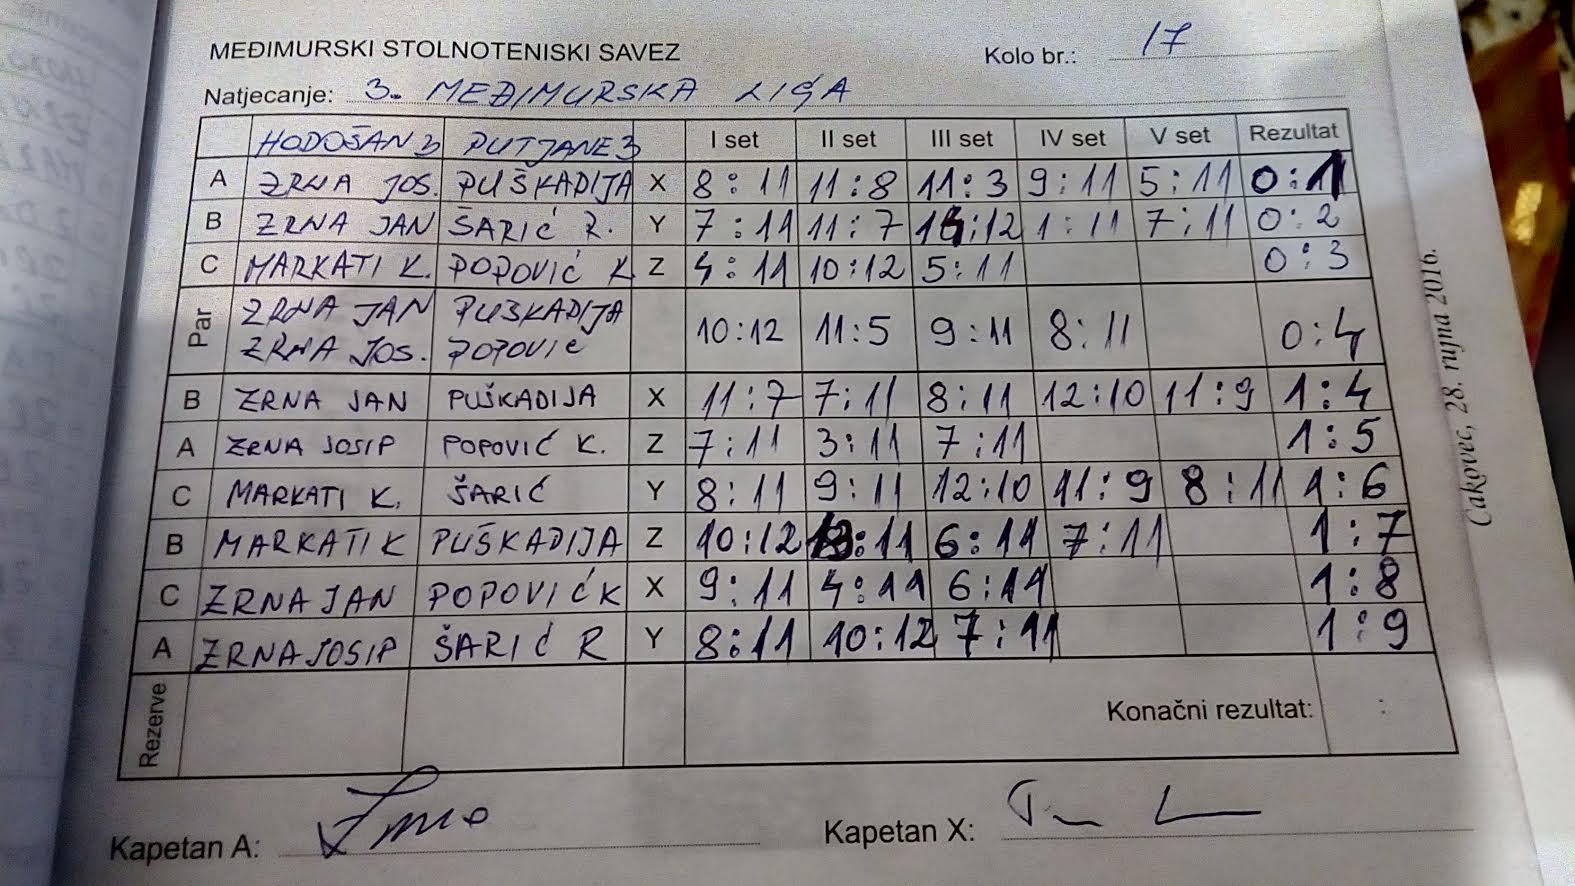 MEĐIMURSKI STOLNOTENISKI SAVEZ
Kolo br.: 17
Natjecanje: 3. MEĐIMURSKA LIGA
HODOŠAN 3 PUTJANE 3 I set II set III set IV set V set Rezultat
A ZRNA JOS. PUŠKADIJA X 8:11 11:8 11:3 9:11 5:11 0:1
B ZRNA JAN ŠARIĆ R. Y 7:11 11:7 14:12 1:11 7:11 0:2
C MARKATI K. POPOVIĆ K Z 4:11 10:12 5:11 0:3
Par ZRNA JAN PUŠKADIJA
ZRNA JOS. POPOVIĆ 10:12 11:5 9:11 8:11 0:4
B ZRNA JAN PUŠKADIJA X 11:7 7:11 8:11 12:10 11:9 1:4
A ZRNA JOSIP POPOVIĆ K. Z 7:11 3:11 7:11 1:5
C MARKATI K. ŠARIĆ Y 8:11 9:11 12:10 11:9 8:11 1:6
B MARKATI K PUŠKADIJA Z 10:12 13:11 6:11 7:11 1:7
C ZRNA JAN POPOVIĆ K X 9:11 4:11 6:11 1:8
A ZRNA JOSIP ŠARIĆ R Y 8:11 10:12 7:11 1:9
Rezerve Konačni rezultat: :
Kapetan A:
Kapetan X:
Čakovec, 28. rujna 2016.